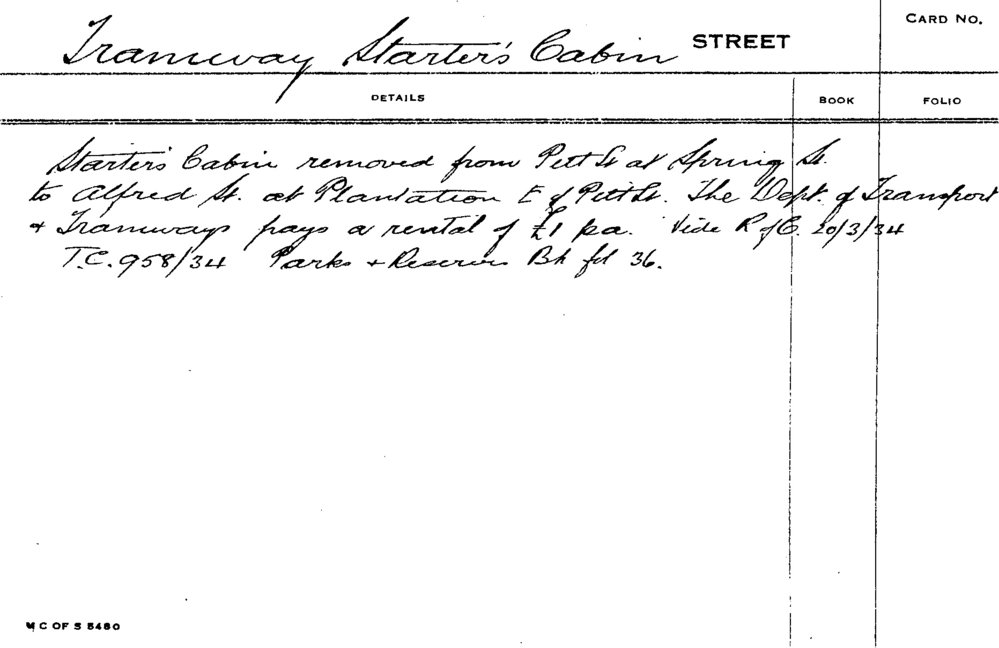 Tramway Starter's Cabin STREET
CARD NO.
DETAILS
BOOK
FOLIO
Starter's Cabin removed from Pitt St at Spring St.
to Alfred St. at Plantation E of Pitt St. The Dept. of Transport
& Tramways pays a rental of £1 p.a. Vide R of C. 20/3/34
T.C. 958/34 Parks & Reserves Bk fol 36.
M C OF S 5480